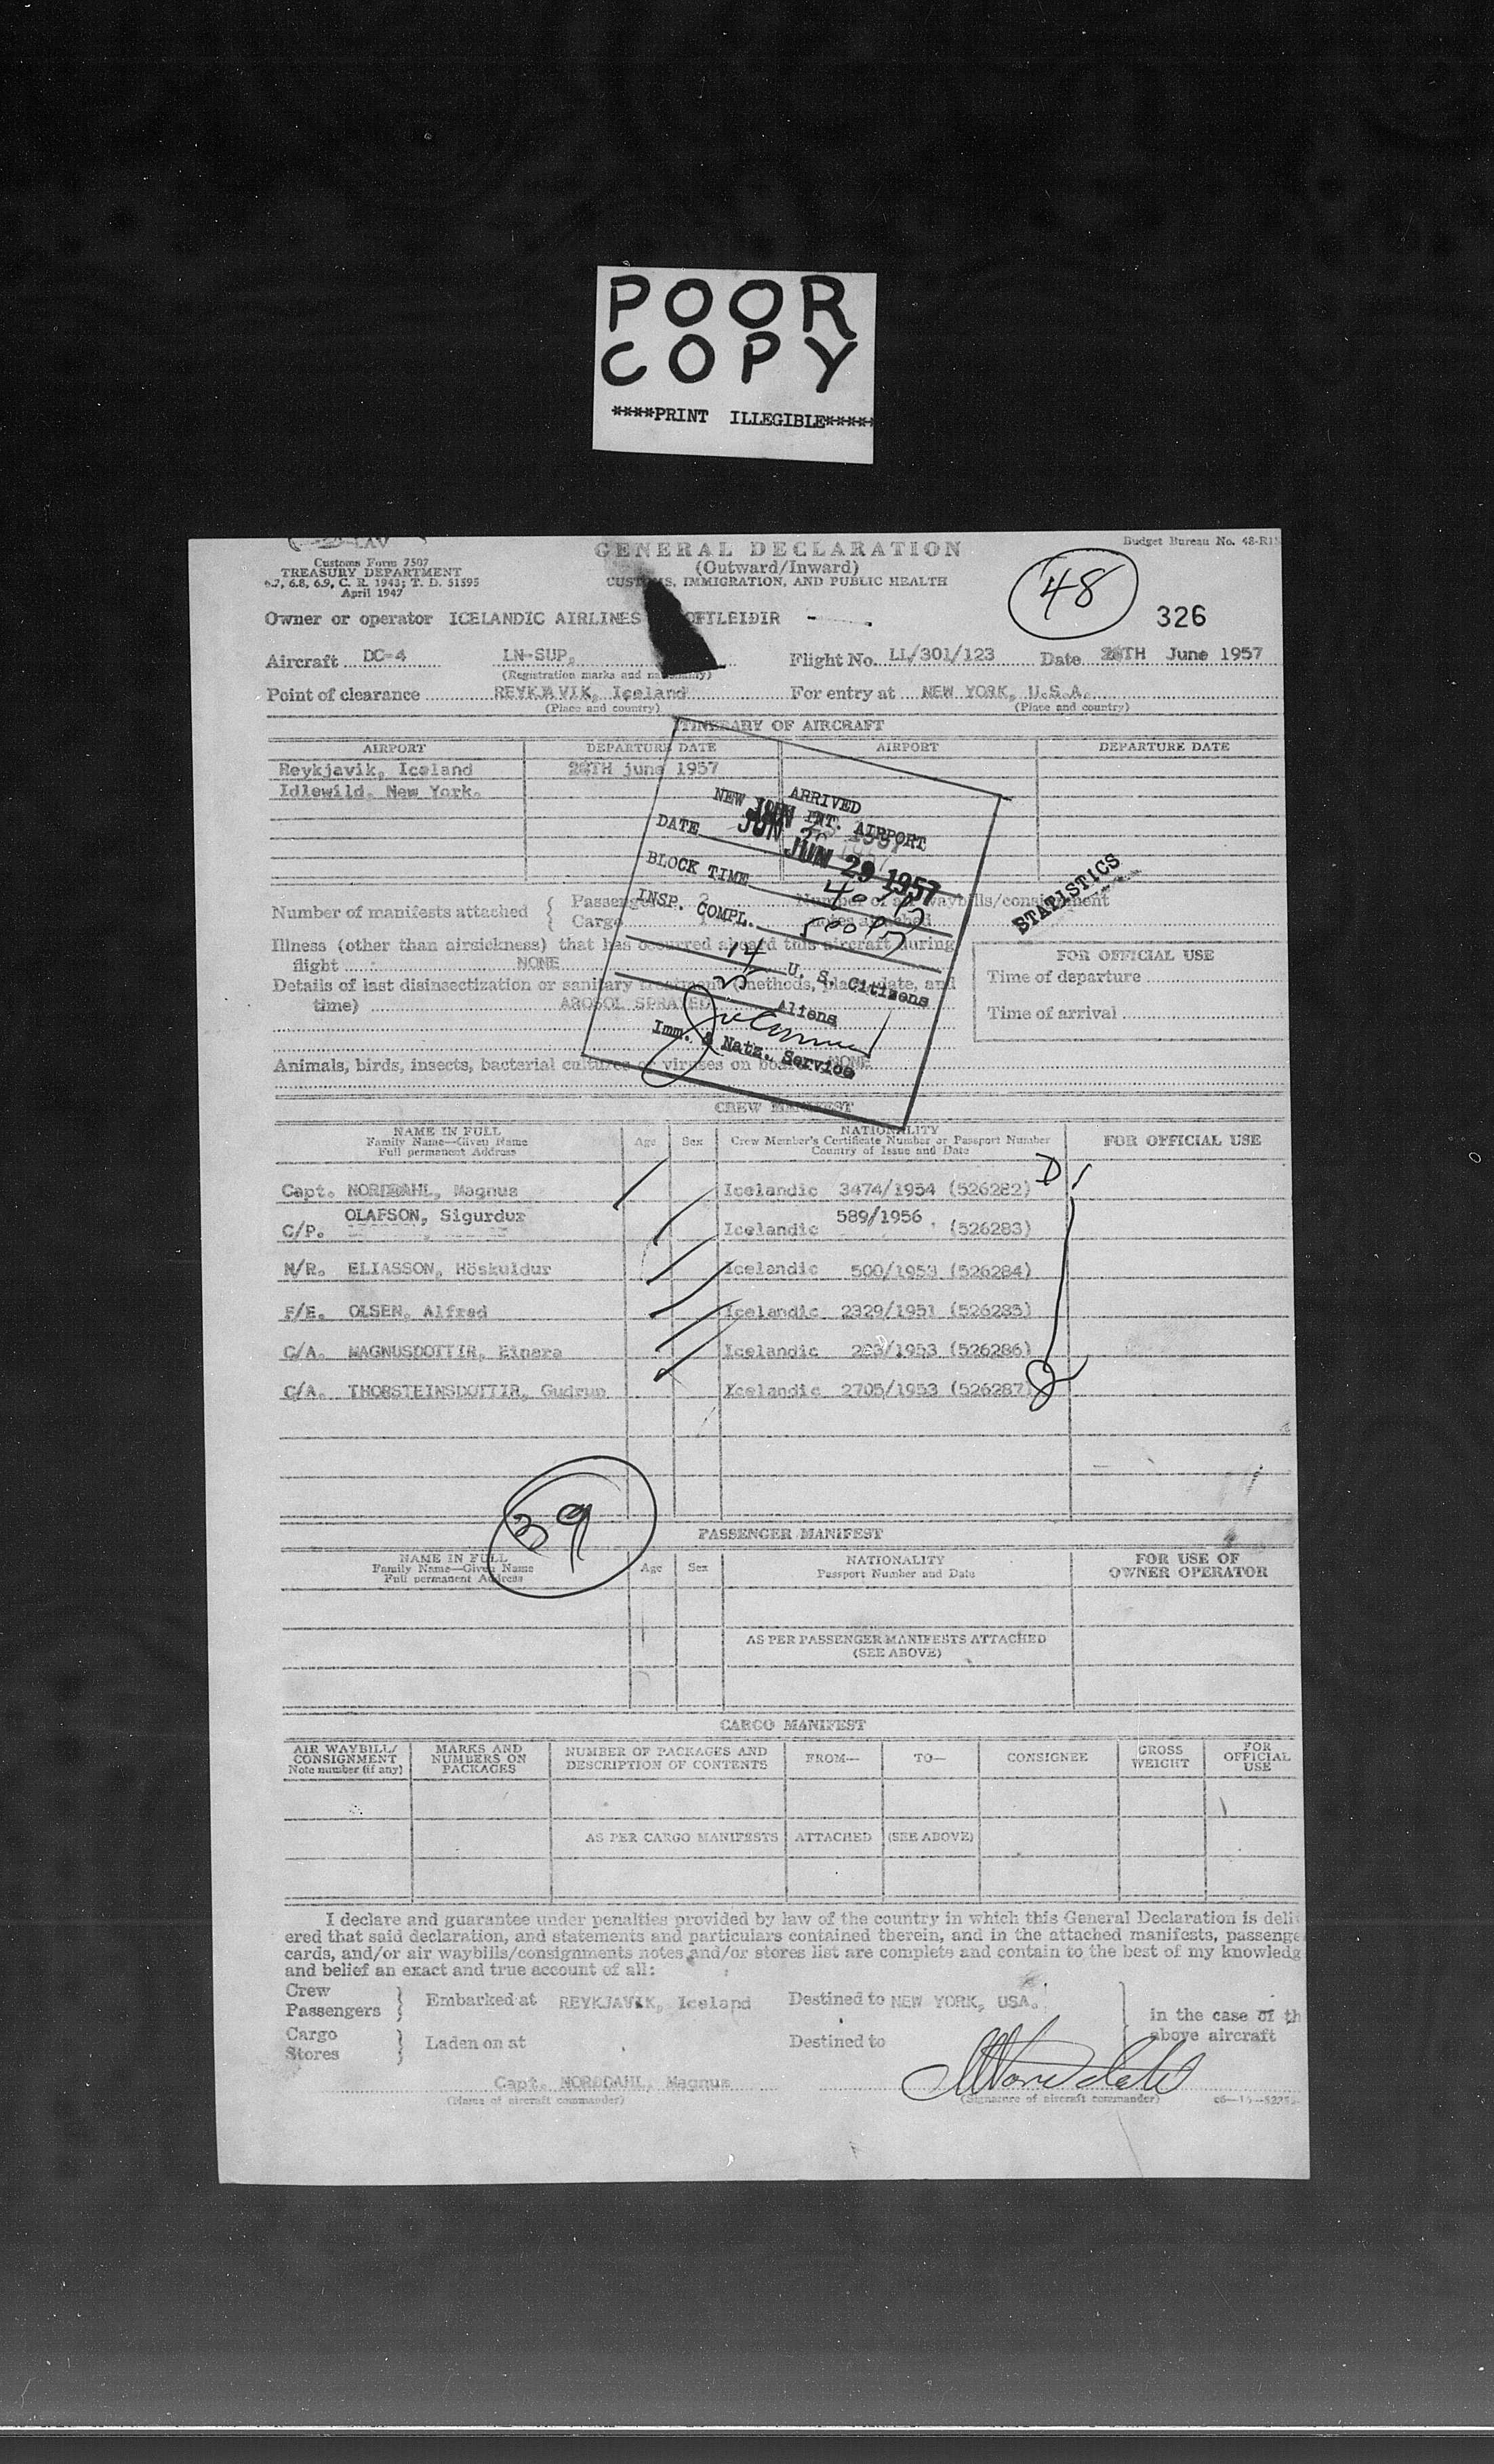 POOR
COPY
****PRINT ILLEGIBLE*****
Customs Form 7507
TREASURY DEPARTMENT
6.7, 6.8, 6.9, C. R. 1943; T. D. 51595
April 1947
GENERAL DECLARATION
(Outward/Inward)
CUSTOMS, IMMIGRATION, AND PUBLIC HEALTH
Budget Bureau No. 48-R15
48
326
Owner or operator ICELANDIC AIRLINES LOFTLEIDIR
Aircraft DC-4 LN-SUP, Flight No. LL/301/123 Date TH June 1957
(Registration marks and nationality)
Point of clearance REYKJAVIK, Iceland For entry at NEW YORK, U.S.A.
(Place and country) (Place and country)
ITINERARY OF AIRCRAFT
AIRPORT DEPARTURE DATE AIRPORT DEPARTURE DATE
Reykjavik, Iceland TH june 1957
Idlewild, New York.
ARRIVED
NEW YORK INT. AIRPORT
DATE JUN 29 1957
BLOCK TIME
INSP. COMPL.
14 U. S. Citizens
25 Aliens
Imm. & Natz. Service
STATISTICS
Number of manifests attached { Passenger 2 Number of air waybills/consignment
Cargo notes attached
Illness (other than airsickness) that has occurred aboard this aircraft during
flight NONE
Details of last disinsectization or sanitary treatment (methods, place, date, and
time) AROSOL SPRAYED
FOR OFFICIAL USE
Time of departure
Time of arrival
Animals, birds, insects, bacterial cultures or viruses on board NONE
CREW MANIFEST
NAME IN FULL
Family Name—Given Name
Full permanent Address
Age Sex
NATIONALITY
Crew Member's Certificate Number or Passport Number
Country of Issue and Date
FOR OFFICIAL USE
Capt. NORDDAHL, Magnus Icelandic 3474/1954 (526282)
C/P. OLAFSON, Sigurdur Icelandic 589/1956 (526283)
N/R. ELIASSON, Höskuldur Icelandic 500/1953 (526284)
F/E. OLSEN, Alfred Icelandic 2329/1951 (526285)
C/A. MAGNUSDOTTIR, Einara Icelandic /1953 (526286)
C/A. THORSTEINSDOTTIR, Gudrun Icelandic 2705/1953 (526287)
39
PASSENGER MANIFEST
NAME IN FULL
Family Name—Given Name
Full permanent Address
Age Sex
NATIONALITY
Passport Number and Date
FOR USE OF
OWNER OPERATOR
AS PER PASSENGER MANIFESTS ATTACHED
(SEE ABOVE)
CARGO MANIFEST
AIR WAYBILL/
CONSIGNMENT
Note number (if any)
MARKS AND
NUMBERS ON
PACKAGES
NUMBER OF PACKAGES AND
DESCRIPTION OF CONTENTS
FROM— TO— CONSIGNEE
GROSS
WEIGHT
FOR
OFFICIAL
USE
AS PER CARGO MANIFESTS ATTACHED (SEE ABOVE)
I declare and guarantee under penalties provided by law of the country in which this General Declaration is deliv
ered that said declaration, and statements and particulars contained therein, and in the attached manifests, passenge
cards, and/or air waybills/consignments notes and/or stores list are complete and contain to the best of my knowledg
and belief an exact and true account of all:
Crew
Passengers } Embarked at REYKJAVIK, Iceland Destined to NEW YORK, USA.
in the case of th
above aircraft
Cargo
Stores } Laden on at Destined to
Capt. NORDDAHL, Magnus
(Name of aircraft commander) (Signature of aircraft commander)